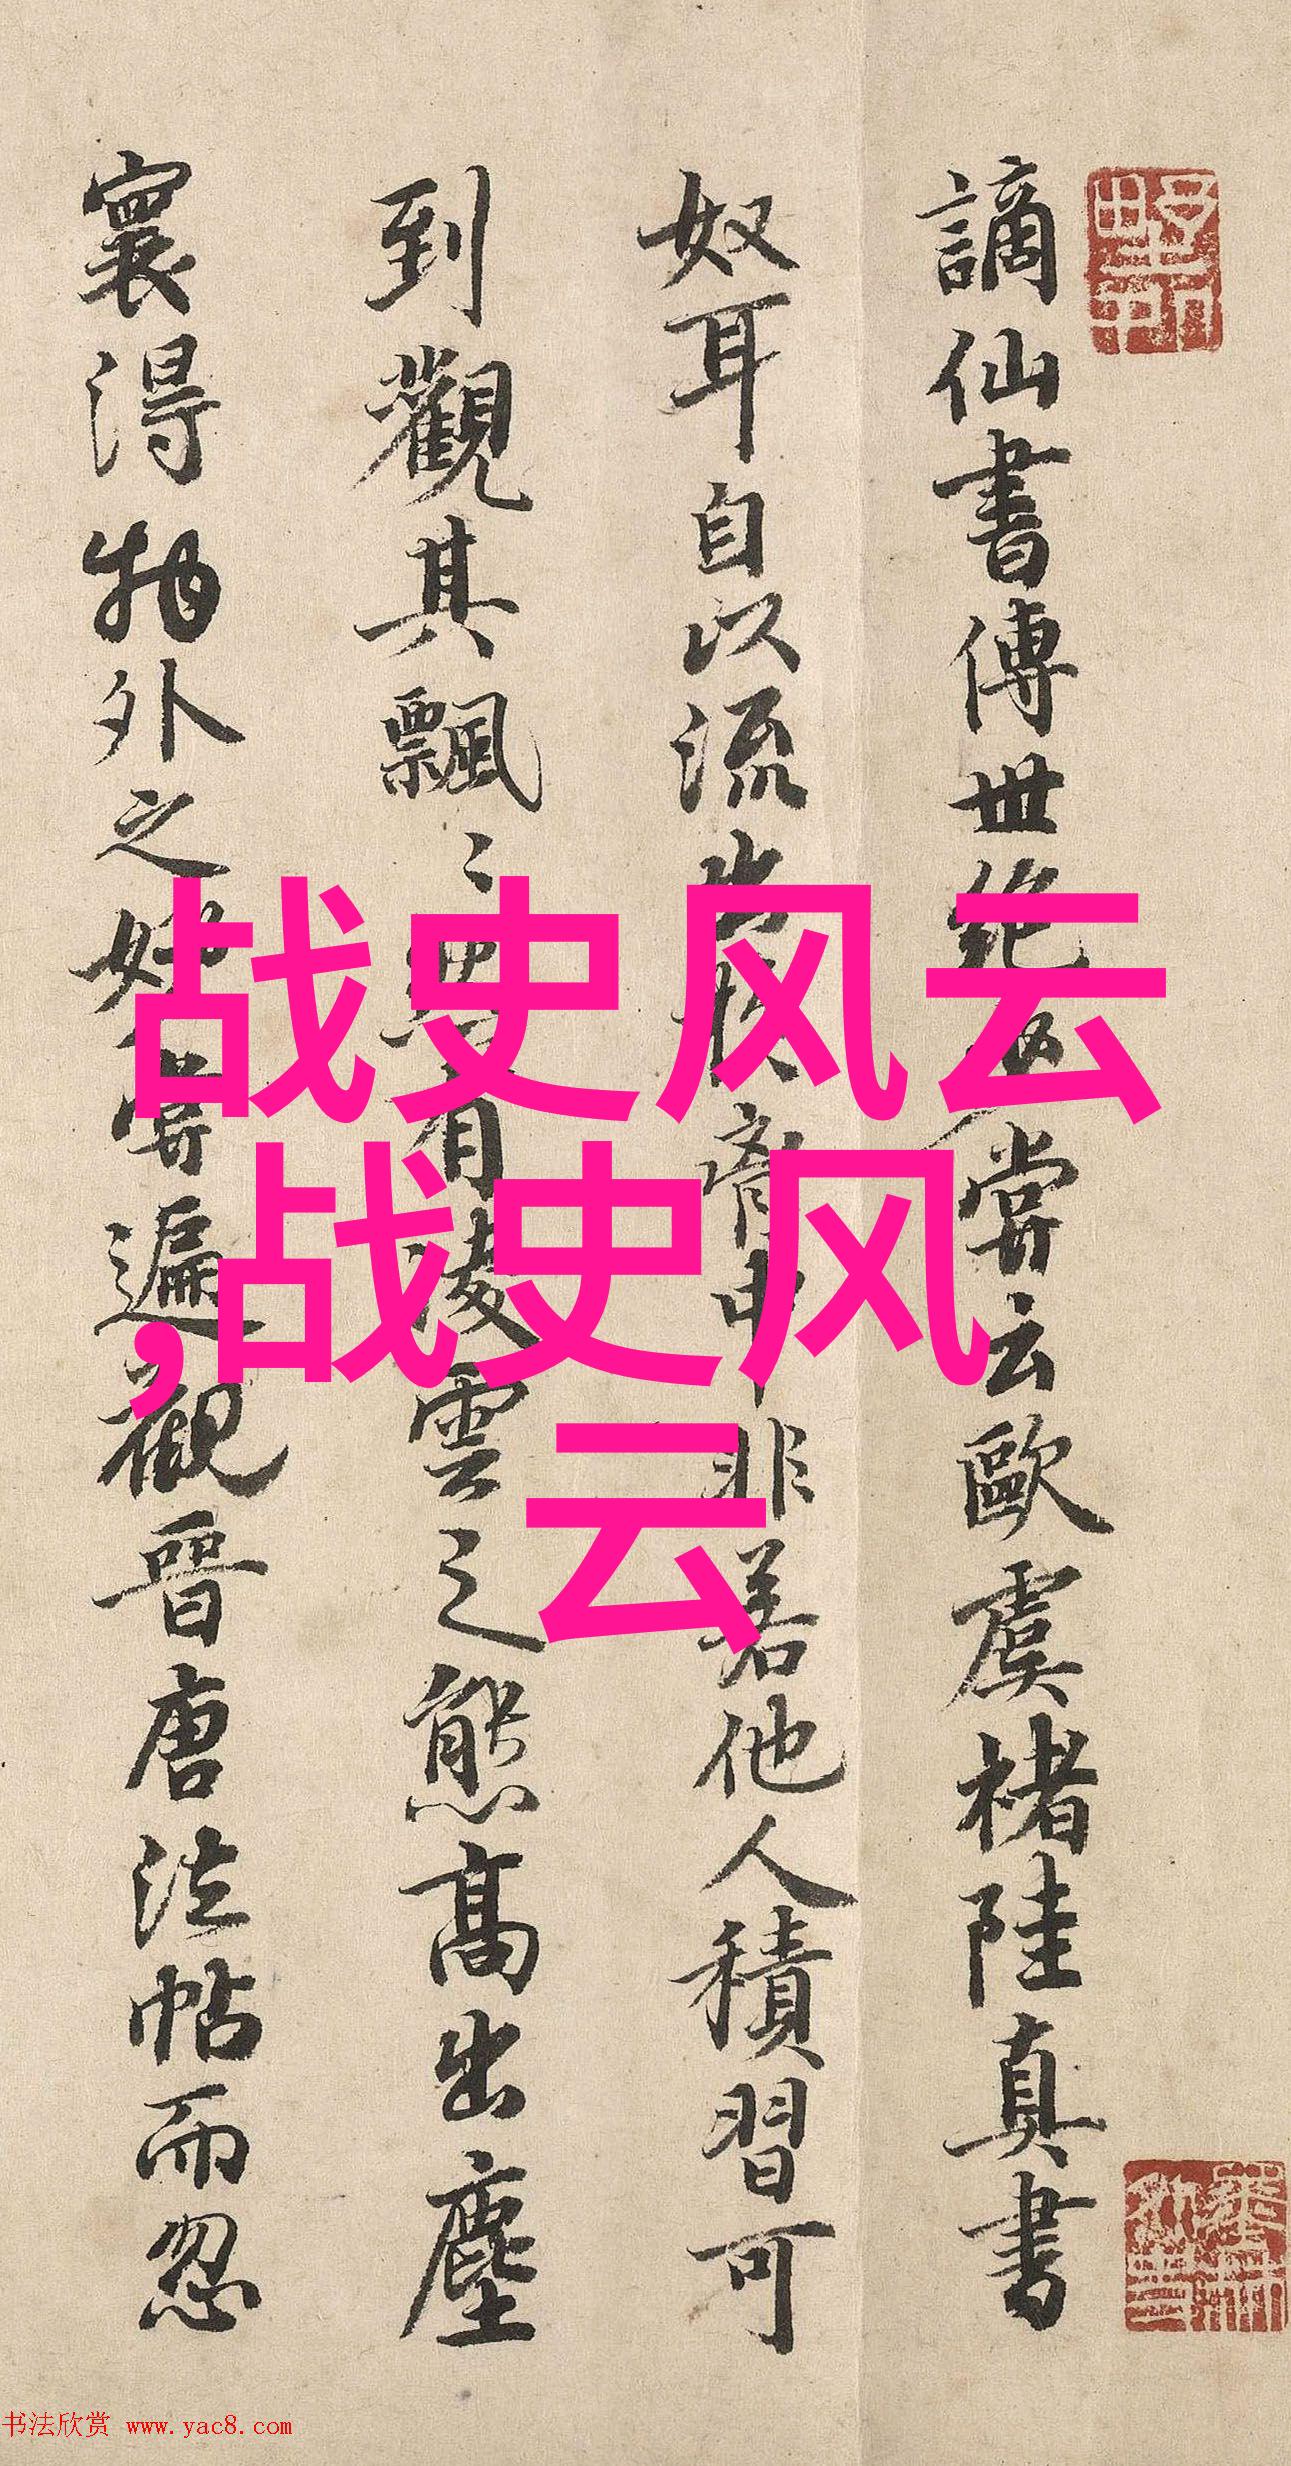 谪仙書傳世絶
嘗云歐虞褚陸真書
奴耳自以流出
齊
非若他人積習可
到觀其飄〻
有凌雲之態高出塵
寰得物外之妙嘗遍觀晉唐法帖而忽
战史风云
,战史风
云
书法欣赏 www.yac8.com